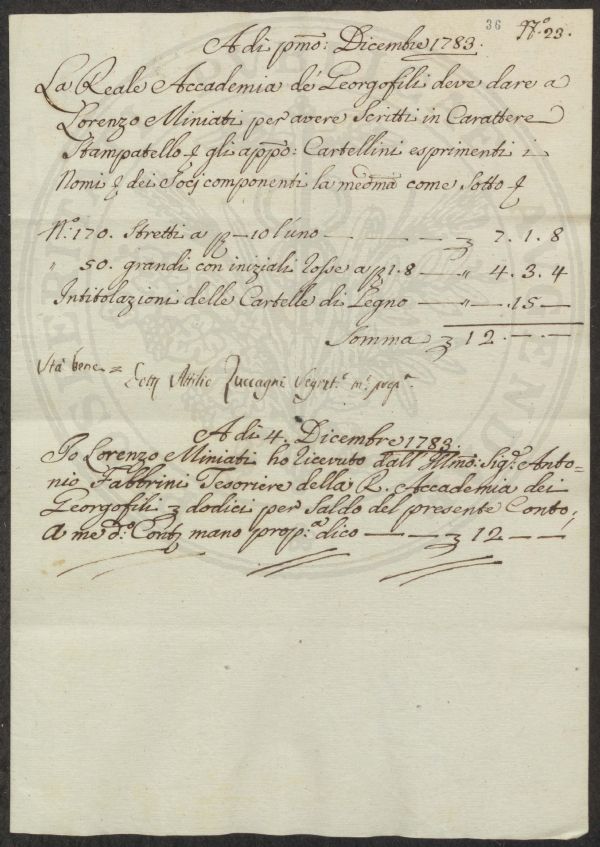 36 N.º 23.
A dì pmo: Dicembre 1783.
La Reale Accademia de' Georgofili deve dare a
Lorenzo Miniati per avere Scritti in Carattere
Stampatello gli appo: Cartellini esprimenti i
Nomi dei Socj componenti la medma come Sotto
N.º 170. Stretti a p — 10 l'uno — — — 7. 1. 8
" 50. grandi con iniziali rosse a p 1.8 — " 4. 3. 4
Intitolazioni delle Cartelle di Legno — " — . 15 —
Somma 12. — . —
Stà bene =
Attilio Zuccagni Segret.º m.º prop.ª
A dì 4. Dicembre 1783.
Io Lorenzo Miniati ho ricevuto dall' Illmo: Sig.r Anto=
nio Fabbrini Tesoriere della R. Accademia dei
Georgofili dodici per Saldo del presente Conto,
a me d.º Cont mano prop.ª dico — — 12 — —